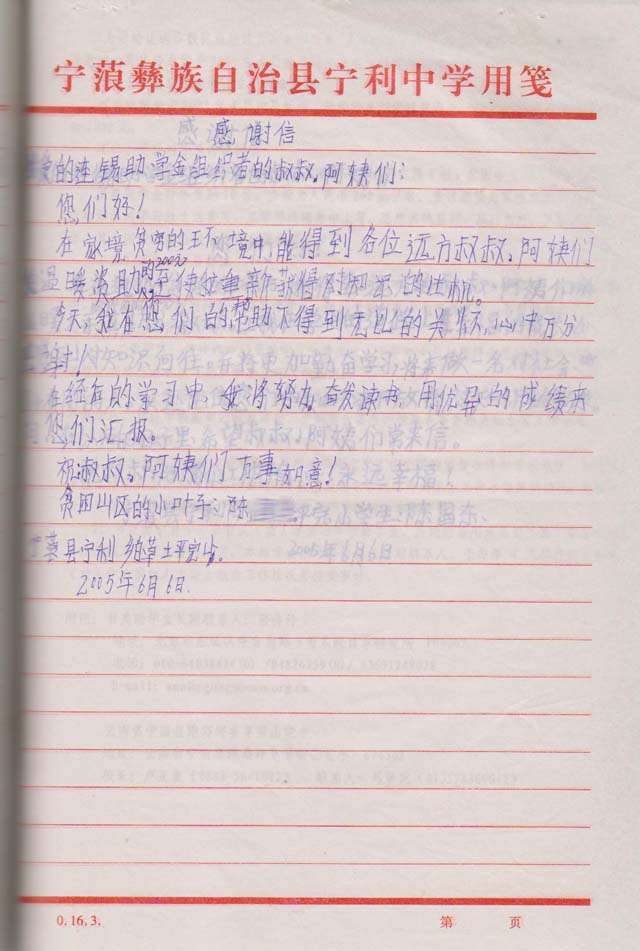 宁蒗彝族自治县宁利中学用笺
感谢信
的连锡助学金组织者的叔叔,阿姨们:
您们好!
在家境贫穷的环境中,能得到各位远方叔叔,阿姨们
温暖资助的 使我重新获得对知识的
今天,我在您们的帮助下得到无比的关 ,心中万分
感谢!
在经后的学习中,我将努力奋发读书,用优异的成绩来
向您们汇报。
祝淑叔,阿姨们万事如意!
贫困山区的小叶子:陈
宁蒗县宁利 草土坪完小。
2005年6月6日.
0.16.3.
第 页